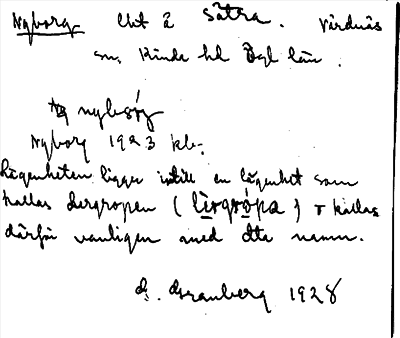 Nyborg Lht å Sätra. Värdnäs
sn, Kinda hd Ögl län.
nyborg
Nyborg 1923 kb.
Lägenheten ligger intill en lägenhet som
kallas Lergropen (lèrgròpa) o kallas
därför vanligen med dta namn.
Granberg 1928